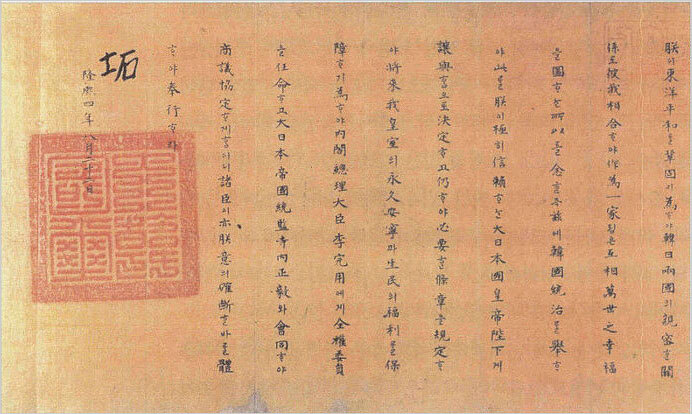 朕이東洋平和를鞏固히爲ᄒᆞ야韓日兩國의親密ᄒᆞᆫ關
係로彼我相合ᄒᆞ야作爲一家ᄒᆞᆷ은互相萬世之幸福
을圖ᄒᆞᄂᆞᆫ所以를念ᄒᆞᆫ즉玆에韓國統治를擧ᄒᆞ
야此를朕이極히信賴ᄒᆞᄂᆞᆫ大日本國皇帝陛下게
讓與ᄒᆞᆷ으로決定ᄒᆞ고仍ᄒᆞ야必要ᄒᆞᆫ條章을規定ᄒᆞ
야將來我皇室의永久安寧과生民의福利를保
障ᄒᆞ기爲ᄒᆞ야內閣總理大臣李完用에게全權委員
을任命ᄒᆞ고大日本帝國統監寺內正毅와會同ᄒᆞ야
商議協定ᄒᆞ게ᄒᆞ미니諸臣이亦朕意의確斷ᄒᆞᆫ바를體
ᄒᆞ야奉行ᄒᆞ라
隆熙四年八月二十二日
坧